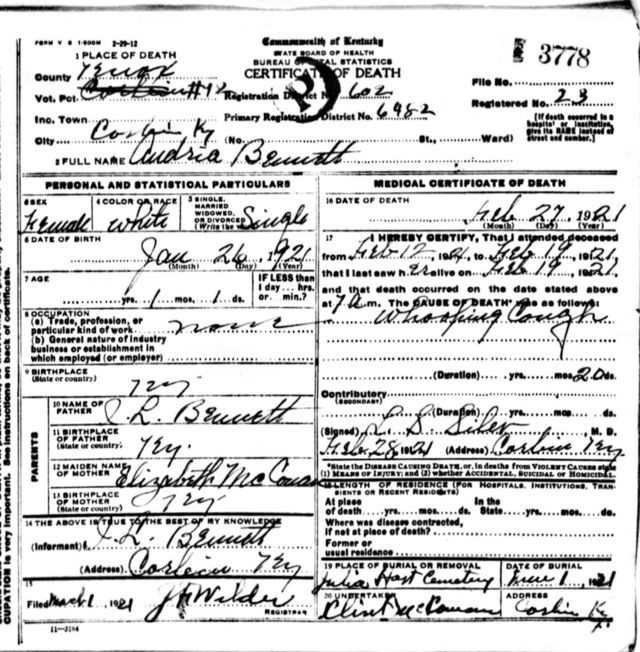 FORM V S 1-500M 2-29-12
Commonwealth of Kentucky
STATE BOARD OF HEALTH
BUREAU OF VITAL STATISTICS
CERTIFICATE OF DEATH
3778
1 PLACE OF DEATH
County Knox
Vot. Pct. #12
Registration District No. 602
File No.
Inc. Town
Primary Registration District No. 6482
Registered No. 23
City Corbin Ky (No. St., Ward)
[If death occurred to a hospital or institution, give its NAME instead of street and number.]
2 FULL NAME Audria Bennett
PERSONAL AND STATISTICAL PARTICULARS
3 SEX Female
4 COLOR OR RACE White
5 SINGLE, MARRIED WIDOWED, OR DIVORCED (Write the word) Single
6 DATE OF BIRTH
Jan 26, 1921
(Month) (Day) (Year)
7 AGE
yrs. 1 mos. 1 ds.
IF LESS than 1 day... hrs. or min.?
8 OCCUPATION
(a) Trade, profession, or particular kind of work none
(b) General nature of industry business or establishment in which employed (or employer)
9 BIRTHPLACE
(State or country) Ky
PARENTS
10 NAME OF FATHER J. L. Bennett
11 BIRTHPLACE OF FATHER (State or country) Ky.
12 MAIDEN NAME OF MOTHER Elizabeth McCowan
13 BIRTHPLACE OF MOTHER (State or country) Ky
14 THE ABOVE IS TRUE TO THE BEST OF MY KNOWLEDGE
(Informant) J. L. Bennett
(Address) Ky
15
Filed Mch 1, 1921 Wilder
REGISTRAR
11—3184
MEDICAL CERTIFICATE OF DEATH
16 DATE OF DEATH
Feb 27 1921
(Month) (Day) (Year)
17 I HEREBY CERTIFY, That I attended deceased
from Feb 12, 1921, to Feb 19, 1921,
that I last saw her alive on Feb 19, 1921,
and that death occurred on the date stated above
at 7 a m. The CAUSE OF DEATH* was as follows:
Whooping Cough
(Duration) yrs. mos. 20 ds.
Contributory
(SECONDARY)
(Duration) yrs. mos. ds.
(Signed) Siler, M. D.
Feb 28, 1921 (Address) Corbin Ky
*State the DISEASE CAUSING DEATH, or, in deaths from VIOLENT CAUSES state (1) MEANS OF INJURY; and (2) whether ACCIDENTAL, SUICIDAL or HOMICIDAL.
18 LENGTH OF RESIDENCE (FOR HOSPITALS, INSTITUTIONS, TRANSIENTS OR RECENT RESIDENTS)
At place of death yrs. mos. ds. In the State yrs. mos. ds.
Where was disease contracted, if not at place of death?
Former or usual residence
19 PLACE OF BURIAL OR REMOVAL Julia Hart Cemetery
DATE OF BURIAL 1, 1921
20 UNDERTAKER Clint McCowan
ADDRESS Corbin Ky
CUPATION is very important. See instructions on back of certificate.